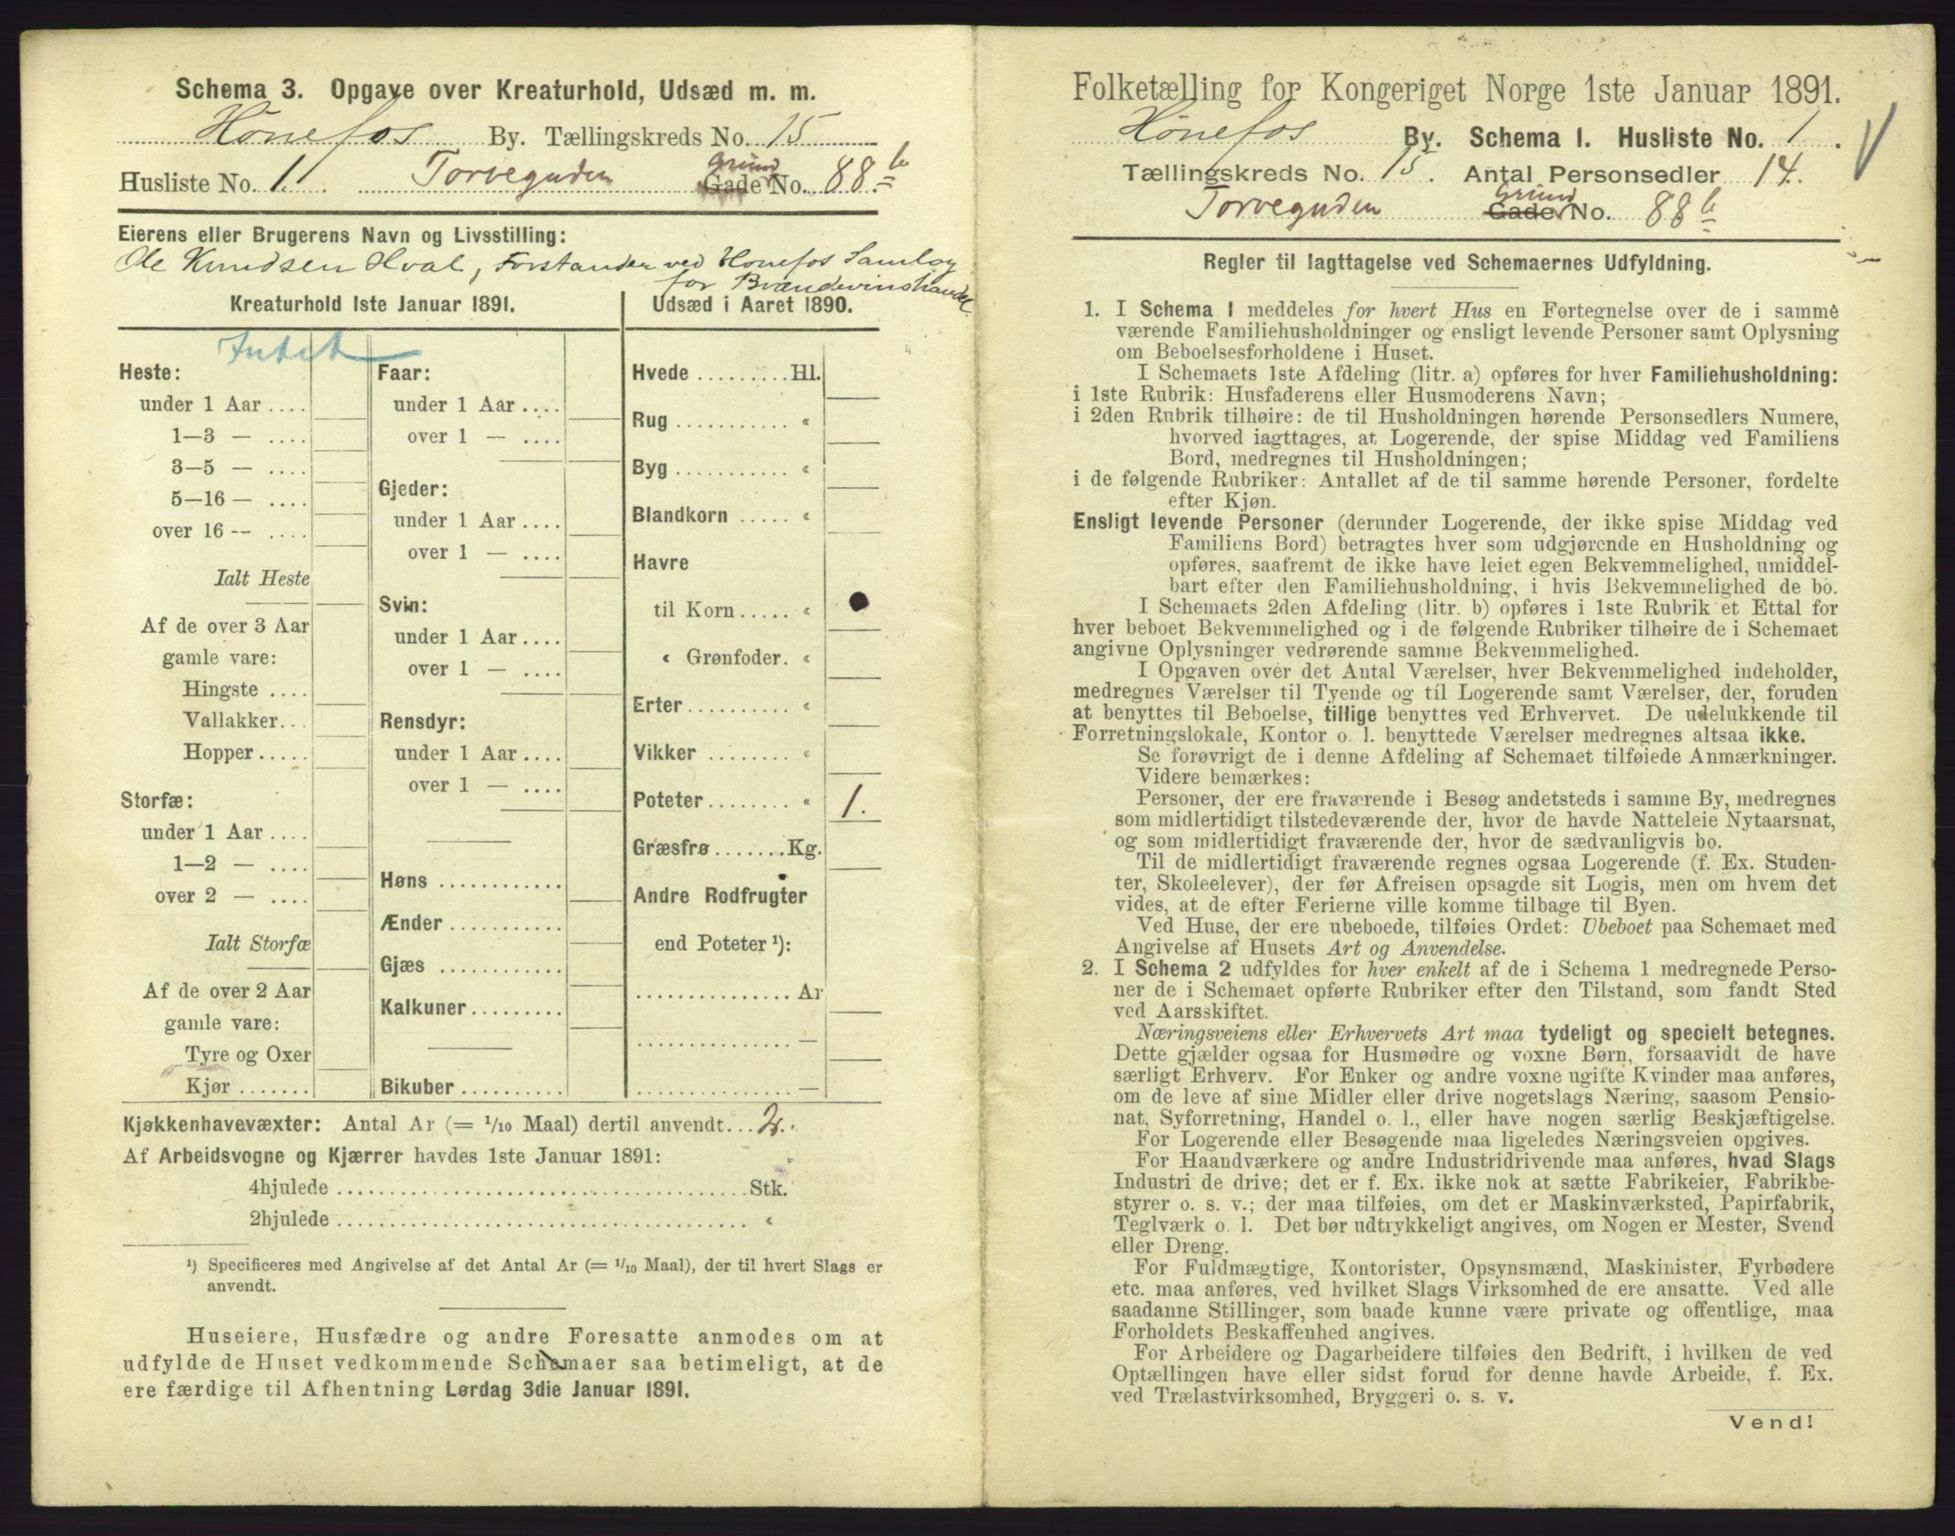 Schema 3. Opgave over Kreaturhold, Udsæd m. m.
Hønefos By. Tællingskreds No. 15
Husliste No. 1. Torvegaden Grund Gade No. 88 b
Eierens eller Brugerens Navn og Livsstilling:
Ole Knudsen Hval, Forstander ved Hønefos Samlag
for Brændevinshandel.
Kreaturhold 1ste Januar 1891.
Intet
Heste:
under 1 Aar ....
1—3 — ....
3—5 — ....
5—16 — ....
over 16 — ....
Ialt Heste
Af de over 3 Aar
gamle vare:
Hingste ....
Vallakker...
Hopper.....
Storfæ:
under 1 Aar ....
1—2 — ....
over 2 — ....
Ialt Storfæ
Af de over 2 Aar
gamle vare:
Tyre og Oxer
Kjør .......
Faar:
under 1 Aar ....
over 1 — ....
Gjeder:
under 1 Aar ....
over 1 — ....
Svin:
under 1 Aar ....
over 1 — ....
Rensdyr:
under 1 Aar ....
over 1 — ....
Høns ............
Ænder ...........
Gjæs ............
Kalkuner.........
Bikuber ..........
Udsæd i Aaret 1890.
Hvede .........Hl.
Rug ........... «
Byg ........... «
Blandkorn ..... «
Havre
til Korn ..... «
« Grønfoder. «
Erter.......... «
Vikker ........ «
Poteter........ « 1.
Græsfrø.......Kg.
Andre Rodfrugter
end Poteter ¹):
............... Ar
............... —
............... —
Kjøkkenhavevæxter: Antal Ar (= 1/10 Maal) dertil anvendt... 2.
Af Arbeidsvogne og Kjærrer havdes 1ste Januar 1891:
4hjulede ........................................Stk.
2hjulede ........................................ «
¹) Specificeres med Angivelse af det Antal Ar (= 1/10 Maal), der til hvert Slags er
anvendt.
Huseiere, Husfædre og andre Foresatte anmodes om at
udfylde de Huset vedkommende Schemaer saa betimeligt, at de
ere færdige til Afhentning Lørdag 3die Januar 1891.
Folketælling for Kongeriget Norge 1ste Januar 1891.
Hønefos By. Schema 1. Husliste No. 1.
Tællingskreds No. 15. Antal Personsedler 14.
Torvegaden Grund Gade No. 88 b
Regler til Iagttagelse ved Schemaernes Udfyldning.
1. I Schema 1 meddeles for hvert Hus en Fortegnelse over de i samme
værende Familiehusholdninger og ensligt levende Personer samt Oplysning
om Beboelsesforholdene i Huset.
I Schemaets 1ste Afdeling (litr. a) opføres for hver Familiehusholdning:
i 1ste Rubrik: Husfaderens eller Husmoderens Navn;
i 2den Rubrik tilhøire: de til Husholdningen hørende Personsedlers Numere,
hvorved iagttages, at Logerende, der spise Middag ved Familiens
Bord, medregnes til Husholdningen;
i de følgende Rubriker: Antallet af de til samme hørende Personer, fordelte
efter Kjøn.
Ensligt levende Personer (derunder Logerende, der ikke spise Middag ved
Familiens Bord) betragtes hver som udgjørende en Husholdning og
opføres, saafremt de ikke have leiet egen Bekvemmelighed, umiddel-
bart efter den Familiehusholdning, i hvis Bekvemmelighed de bo.
I Schemaets 2den Afdeling (litr. b) opføres i 1ste Rubrik et Ettal for
hver beboet Bekvemmelighed og i de følgende Rubriker tilhøire de i Schemaet
angivne Oplysninger vedrørende samme Bekvemmelighed.
I Opgaven over det Antal Værelser, hver Bekvemmelighed indeholder,
medregnes Værelser til Tyende og til Logerende samt Værelser, der, foruden
at benyttes til Beboelse, tillige benyttes ved Erhvervet. De udelukkende til
Forretningslokale, Kontor o. l. benyttede Værelser medregnes altsaa ikke.
Se forøvrigt de i denne Afdeling af Schemaet tilføiede Anmærkninger.
Videre bemærkes:
Personer, der ere fraværende i Besøg andetsteds i samme By, medregnes
som midlertidigt tilstedeværende der, hvor de havde Natteleie Nytaarsnat,
og som midlertidigt fraværende der, hvor de sædvanligvis bo.
Til de midlertidigt fraværende regnes ogsaa Logerende (f. Ex. Studen-
ter, Skoleelever), der før Afreisen opsagde sit Logis, men om hvem det
vides, at de efter Ferierne ville komme tilbage til Byen.
Ved Huse, der ere ubeboede, tilføies Ordet: Ubeboet paa Schemaet med
Angivelse af Husets Art og Anvendelse.
2. I Schema 2 udfyldes for hver enkelt af de i Schema 1 medregnede Perso-
ner de i Schemaet opførte Rubriker efter den Tilstand, som fandt Sted
ved Aarsskiftet.
Næringsveiens eller Erhvervets Art maa tydeligt og specielt betegnes.
Dette gjælder ogsaa for Husmødre og voxne Børn, forsaavidt de have
særligt Erhverv. For Enker og andre voxne ugifte Kvinder maa anføres,
om de leve af sine Midler eller drive nogetslags Næring, saasom Pensio-
nat, Syforretning, Handel o. l., eller have nogen særlig Beskjæftigelse.
For Logerende eller Besøgende maa ligeledes Næringsveien opgives.
For Haandværkere og andre Industridrivende maa anføres, hvad Slags
Industri de drive; det er f. Ex. ikke nok at sætte Fabrikeier, Fabrikbe-
styrer o. s. v.; der maa tilføies, om det er Maskinværksted, Papirfabrik,
Teglværk o. l. Det bør udtrykkeligt angives, om Nogen er Mester, Svend
eller Dreng.
For Fuldmægtige, Kontorister, Opsynsmænd, Maskinister, Fyrbødere
etc. maa anføres, ved hvilket Slags Virksomhed de ere ansatte. Ved alle
saadanne Stillinger, som baade kunne være private og offentlige, maa
Forholdets Beskaffenhed angives.
For Arbeidere og Dagarbeidere tilføies den Bedrift, i hvilken de ved
Optællingen have eller sidst forud for denne havde Arbeide, f. Ex.
ved Trælastvirksomhed, Bryggeri o. s. v.
Vend!